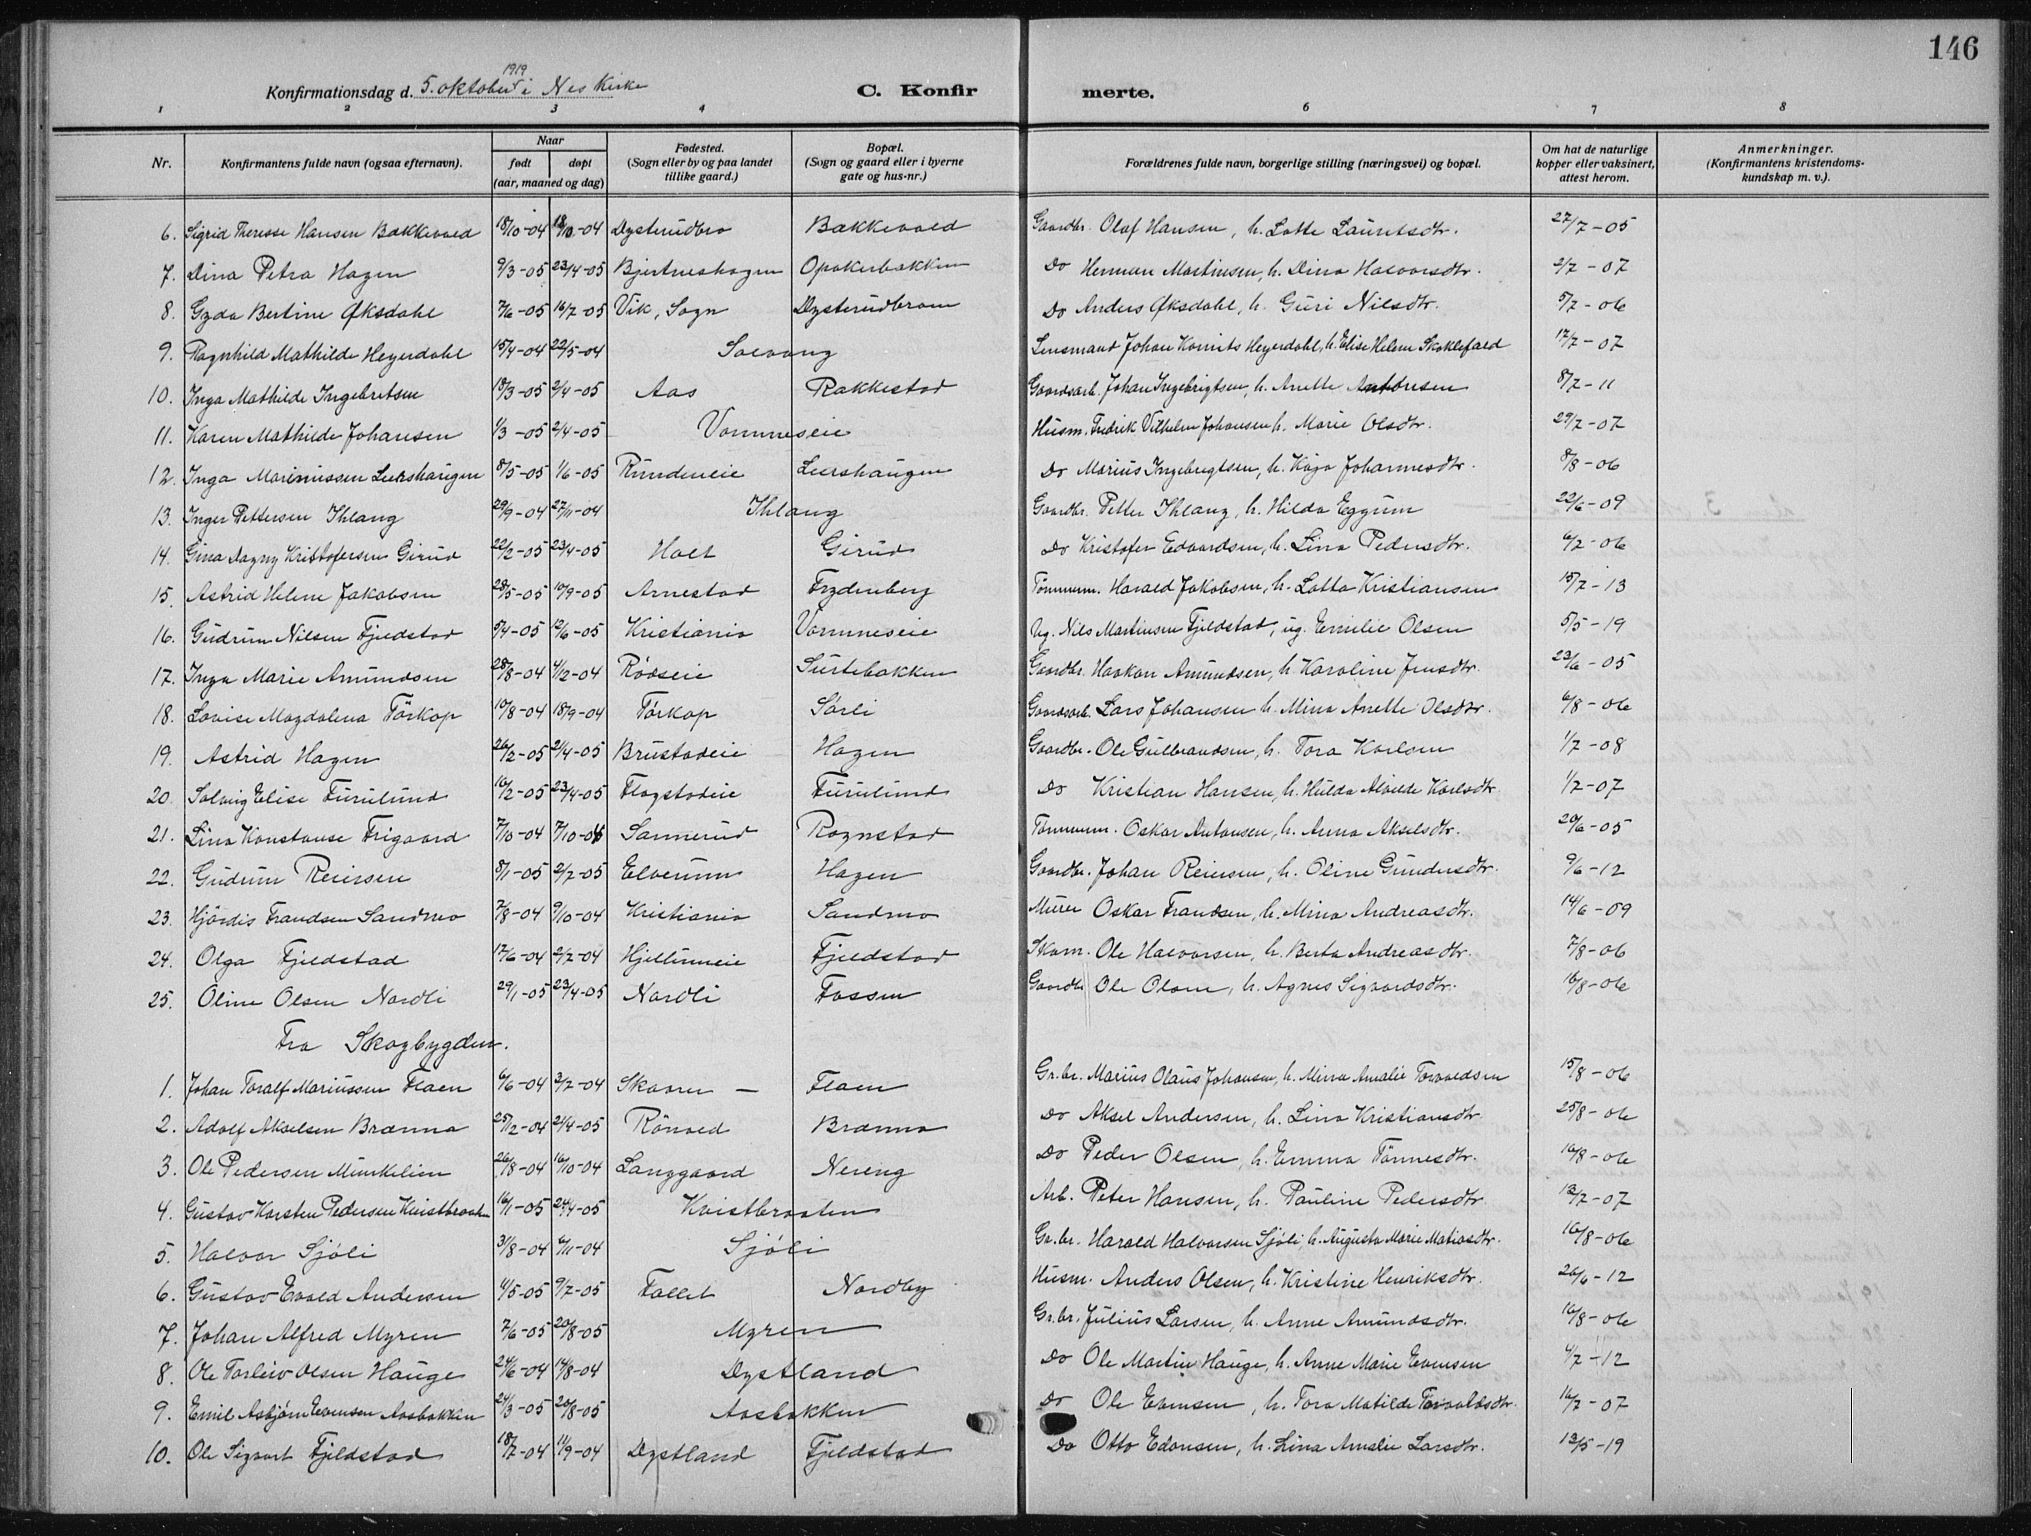 146
Konfirmationsdag d. 5. oktober 1919 i Nes Kirke C. Konfirmerte.
1 2 3 4 6 7 8
Nr. Konfirmantens fulde navn (ogsaa efternavn). Naar født døpt (aar, maaned og dag) Fødested. (Sogn eller by og paa landet tillike gaard.) Bopæl. (Sogn og gaard eller i byerne gate og hus-nr.) Forældrenes fulde navn, borgerlige stilling (næringsvei) og bopæl. Om hat de naturlige kopper eller vaksinert, attest herom. Anmerkninger. (Konfirmantens kristendoms-kundskap m. v.).
6. Sigrid Theresse Hansen Bakkevold 18/10-04 18/10-04 Dysterudbro Bakkevold Gaardbr. Olaf Hansen, h. Lotte Lauritsdtr. 27/7-05
7. Dina Petra Hagen 9/3-05 23/4-05 Bjertneshagen Opakerbakken Do Herman Martinsen, h. Dina Halvorsdtr. 2/7-07
8. Gyda Bertine Øksdahl 7/6-05 16/7-05 Vik, Sogn Dysterudbroen Do Anders Øksdahl, h. Guri Nilsdtr. 5/7-06
9. Ragnhild Mathilde Heyerdahl 15/4-04 22/5-04 Solvang Lensmand Johan Heyerdahl, h. Elise Helene 17/7-07
10. Inga Mathilde Ingebretsen 13/3-05 2/4-05 Aas Rakkestad Gaardsarb. Johan Ingebrigtsen, h. Anette Antonsen 8/7-11
11. Karen Mathilde Johansen 1/3-05 2/4-05 Vormneseie Husm. Fredrik Vilhelm Johansen h. Marie Olsdtr. 29/7-07
12. Inga Marinussen Leershaugen 8/5-05 1/6-05 Rundeneie Leershaugen Do Marius Ingebrigtsen, h. Kaja Johannesdtr. 8/8-06
13. Inger Pettersen Ihlang 29/9-04 27/11-04 Ihlang Gaardbr. Petter Ihlang, h. Hilda Eggum 22/6-09
14. Gina Dagny Kristofersen Girud 22/2-05 23/4-05 Holt Girud Do Kristofer Edvardsen, h. Lina Pedersdtr. 6/2-06
15. Astrid Helene Jakobsen 28/5-05 10/9-05 Arnestad Frydenberg Tömmerm. Harald Jakobsen, h. Lotta Kristiansen 15/7-13
16. Gudrun Nilsen Fjeldstad 5/4-05 12/6-05 Kristiania Vormneseie Ug. Nils Martinsen Fjeldstad, ug. Emilie Olsen 5/5-19
17. Inga Marie Amundsen 28/8-04 4/12-04 Rödseie Surtebakken Gaardbr. Haakon Amundsen, h. Karoline Jensdtr. 23/6-05
18. Lovise Magdalena Törkop 10/8-04 18/9-04 Törkop Sörli Gaardsarb. Lars Johansen h. Mina Anette Olsdtr. 6/8-06
19. Astrid Hagen 26/2-05 2/4-05 Brustadeie Hagen Gaardbr. Ole Gulbrandsen, h. Tora Karlsen 1/7-08
20. Solveig Elise Furulund 16/2-05 23/4-05 Flogstadeie Furulund Do Kristian Hansen, h. Hulda Alvilde Karlsdtr. 1/2-07
21. Lina Konstanse Frigaard 7/10-04 7/10-04 Sannerud Rognstad Tömmerm. Oskar Antonsen, h. Anna Akselsdtr. 20/6-05
22. Gudrun Reiersen 8/1-05 2/2-05 Elverum Hagen Gaardbr. Johan Reiersen, h. Oline Gundersdtr. 9/6-12
23. Hjördis Frandsen Sandmo 7/8-04 9/10-04 Kristiania Sandmo Murer Oskar Frandsen, h. Mina Andreasdtr. 14/6-09
24. Olga Fjeldstad 17/6-04 2/7-04 Hjellumeie Fjeldstad Skom. Ole Halvorsen, h. Berta Andreasdtr. 7/8-06
25. Oline Olsen Nordli 29/1-05 23/4-05 Nordli Fossen Gaardbr Ole Olsen, h. Agnes Sigvardsdtr. 16/8-06
Fra Skogbygden.
1. Johan Toralf Mariussen Flaen 6/6-04 3/7-04 Skaaren — Flaen Gr.br. Marius Olaus Johansen, h. Minna Amalie Torvaldsen 15/8-06
2. Adolf Akselsen Brænna 25/12-04 2/4-05 Rönold Brænna Do Aksel Andersen, h. Lina Kristiansdtr. 25/8-06
3. Ole Pedersen Munkelien 26/8-04 16/10-04 Langgaard Nereng Do Peder Olsen, h. Emma Tönnesdtr. 16/8-06
4. Gustav Karsten Pedersen Kvistbraaten 16/1-05 24/4-05 Kvistbraaten Arb. Peter Hansen, h. Pauline Pedersdtr. 13/7-07
5. Halvor Sjöli 31/8-04 6/11-04 Sjöli Gr.br. Harald Halvorsen Sjöli, h. Augusta Marie Matiasdtr. 16/8-06
6. Gustav Evald Andersen 4/5-05 9/7-05 Follet Nordby Husm. Anders Olsen, h. Kristine Henriksdtr. 26/6-12
7. Johan Alfred Myren 7/6-05 20/8-05 Myren Gr.br. Julius Larsen, h. Anne Amundsdtr. 16/8-06
8. Ole Torleiv Olsen Hauge 24/6-04 14/8-04 Dystland Do Ole Martin Hauge, h. Anne Marie Evensen 4/7-12
9. Emil Asbjørn Evensen Aasbakken 24/3-05 20/8-05 Aasbakken Do Ole Evensen, h. Tora Matilde Torvaldsdtr. 16/7-07
10. Ole Sigvart Fjeldstad 18/7-04 11/9-04 Dystland Fjeldstad Do Otto Edvnsen, h. Lina Amalie Larsdtr. 13/5-19